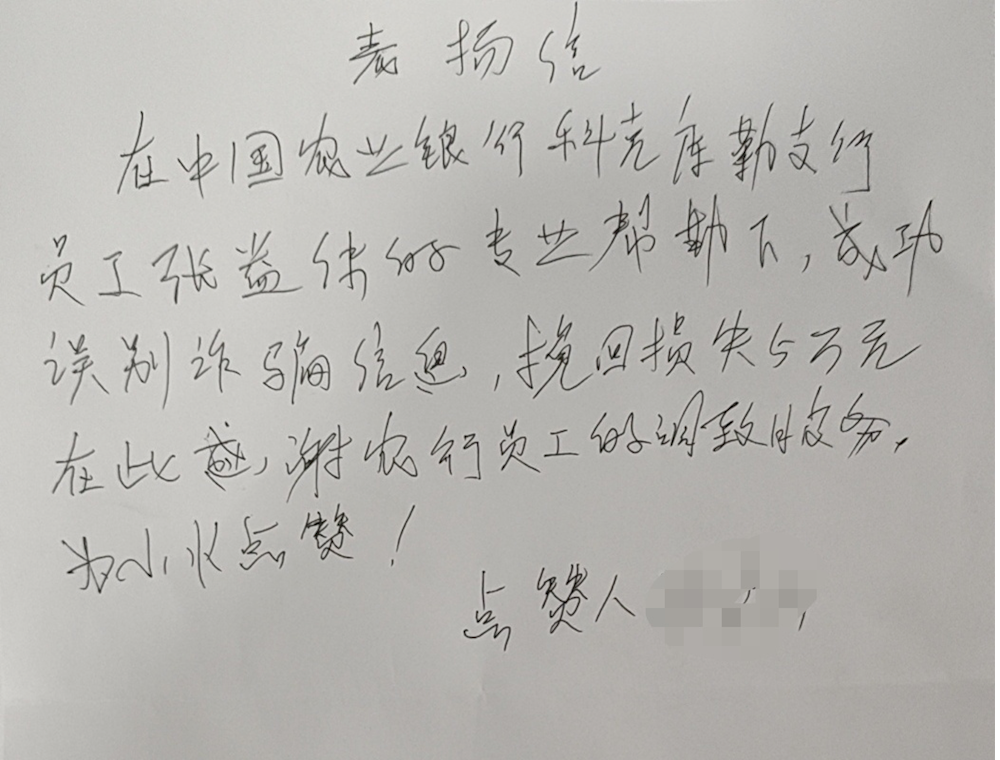 表扬信
在中国农业银行科克库勒支行
员工张益保的专业帮助下,成功
误别诈骗信息,挽回损失5万元
在此感谢农行员工的调致服务,
为小伙点赞!
点赞人